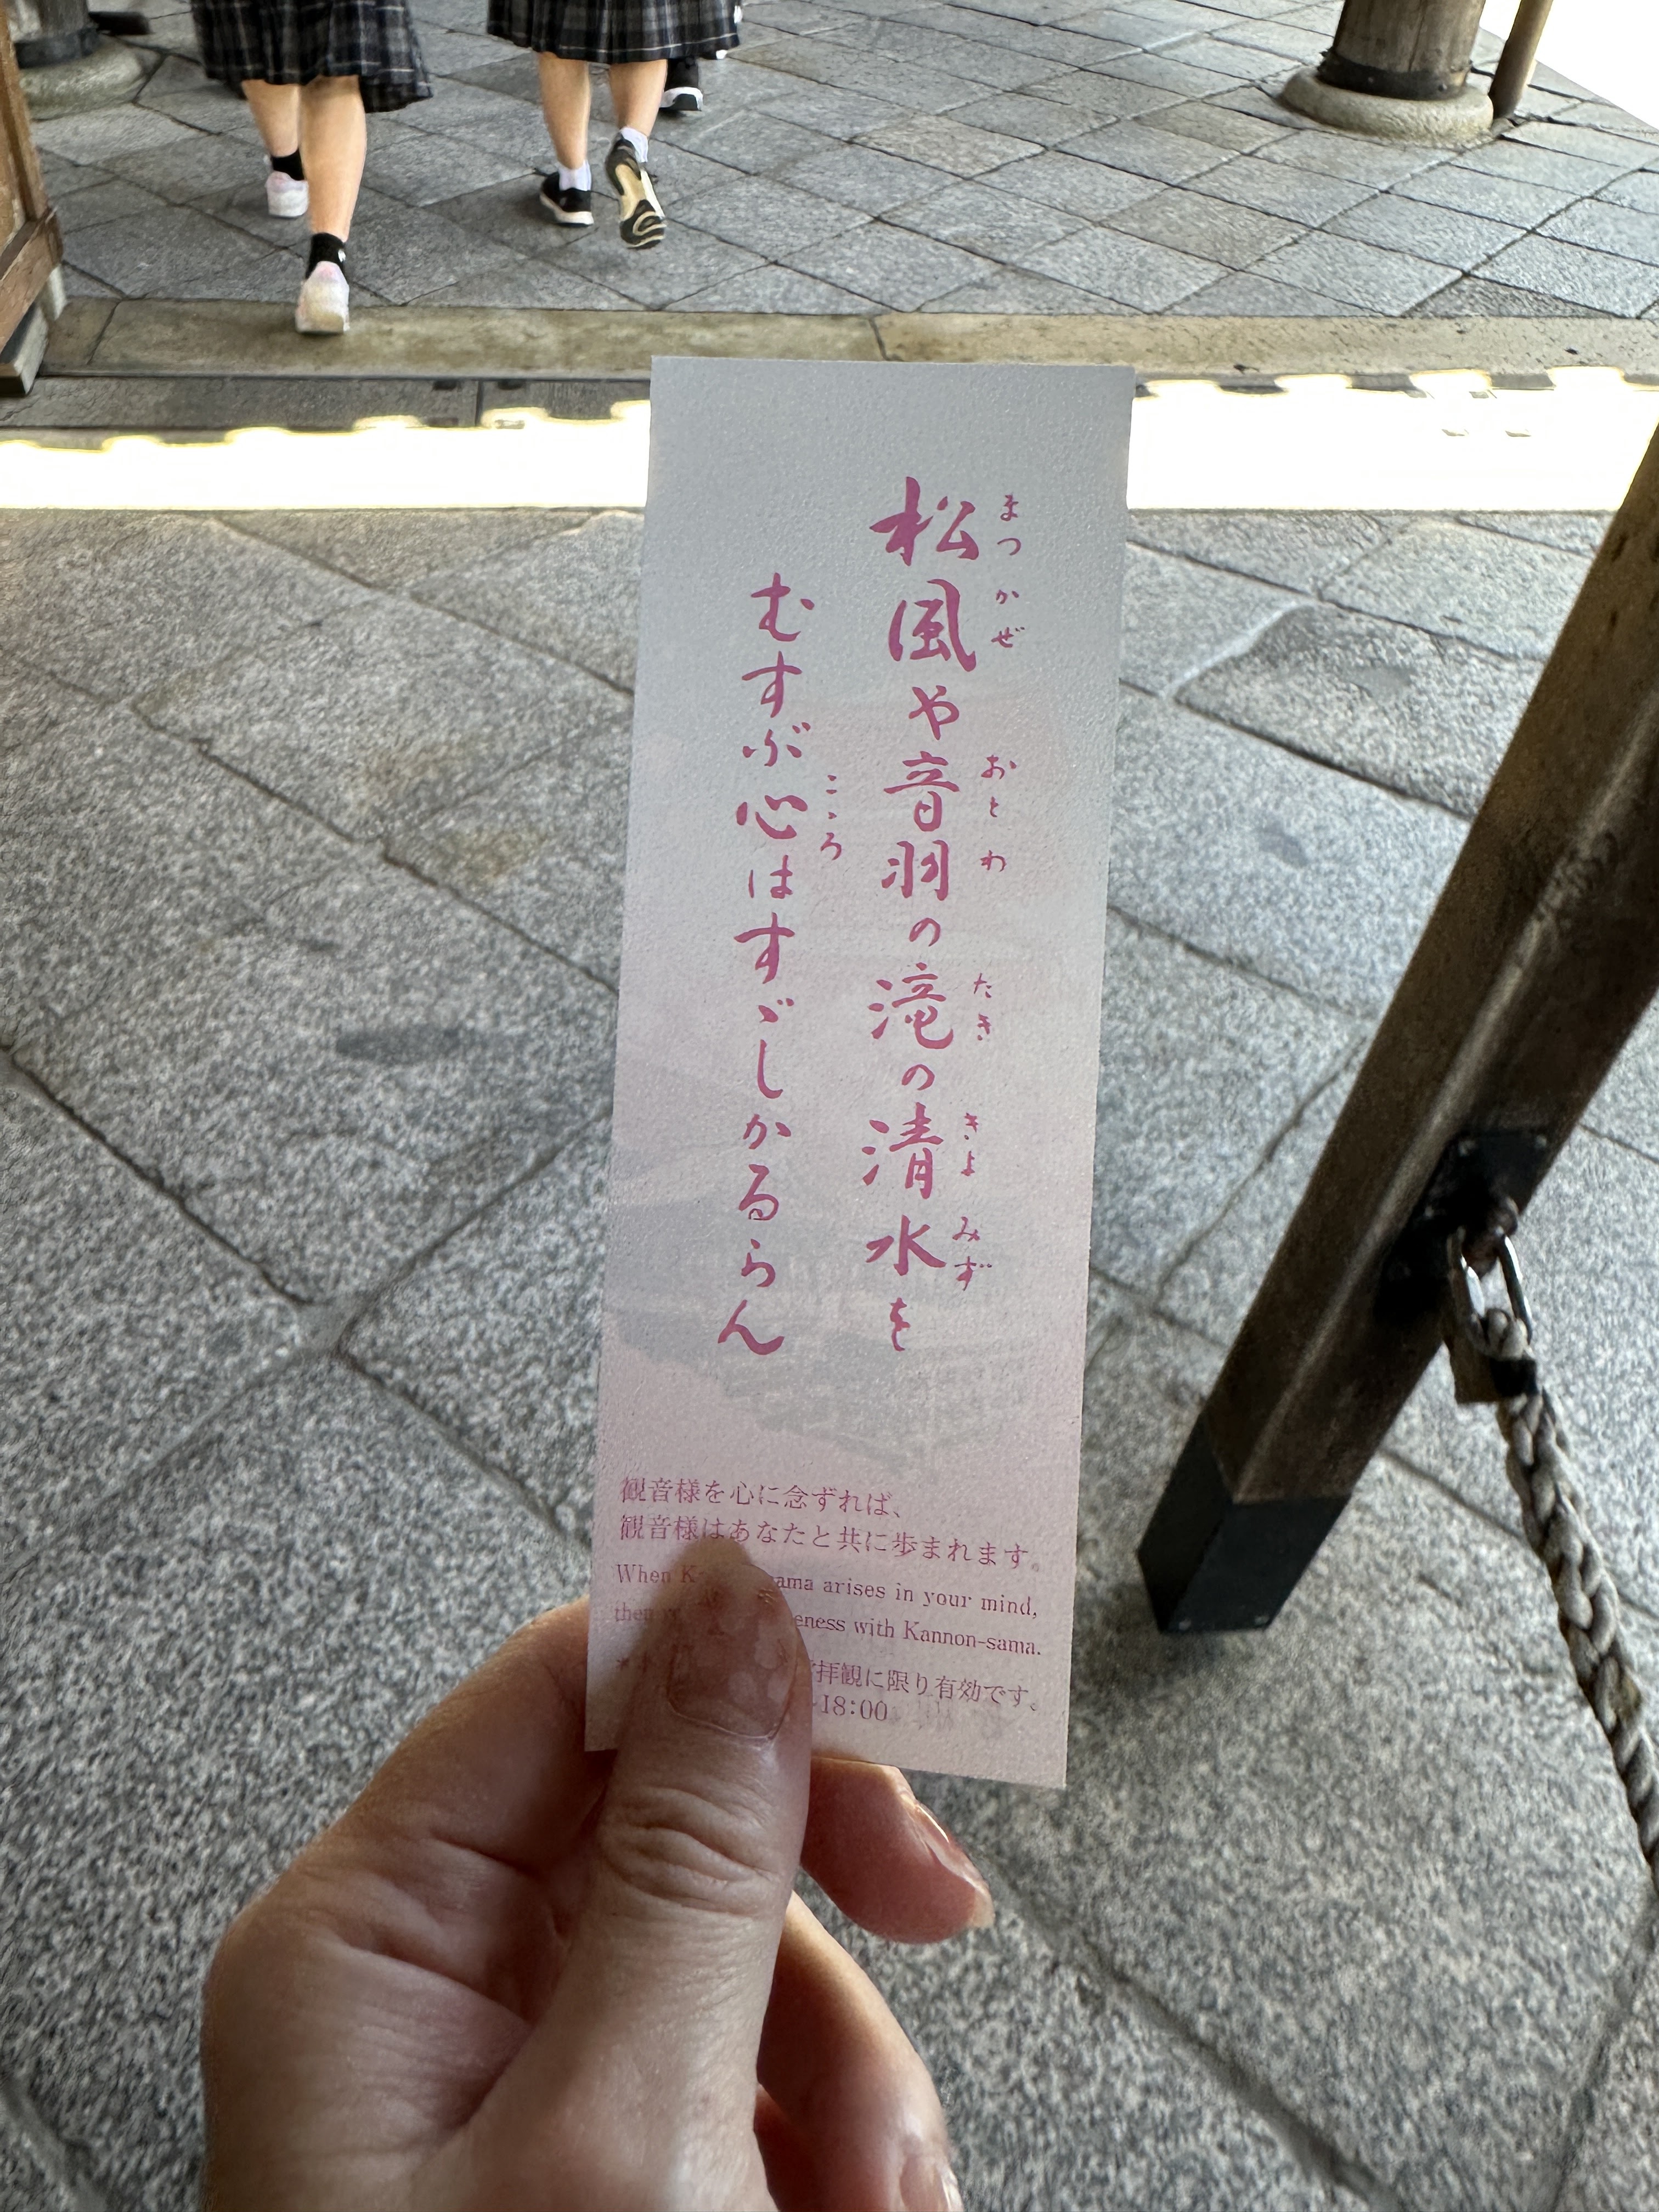 松風や音羽の滝の清水を
まつかぜ おとわ たき きよみず
むすぶ心はすゞしかるらん
こゝろ
観音様を心に念ずれば、
観音様はあなたと共に歩まれます。
When arises in your mind,
with Kannon-sama.
拝観に限り有効です。
18:00